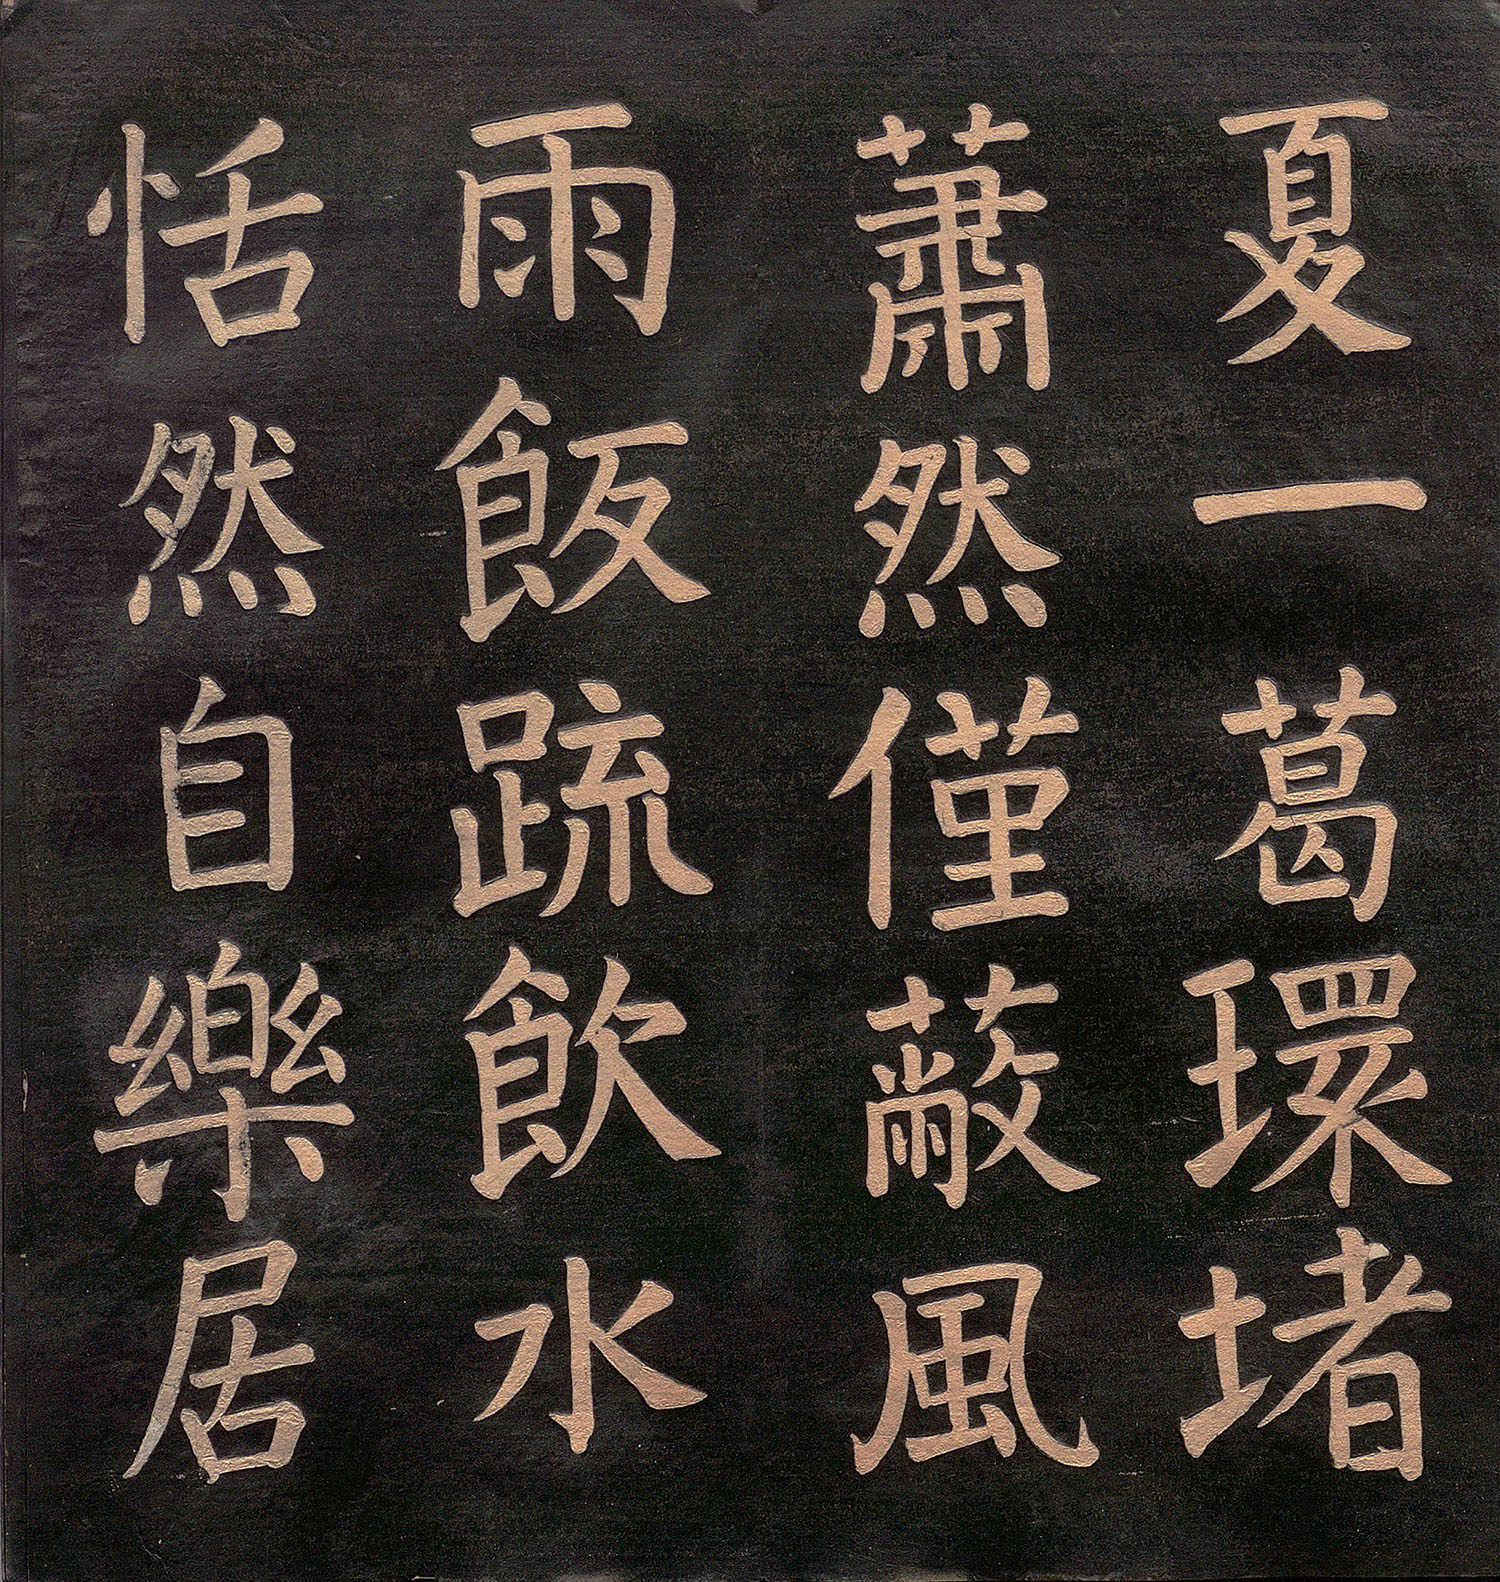 夏一葛環堵
蕭然僅蔽風
雨飯疏飲水
恬然自樂居